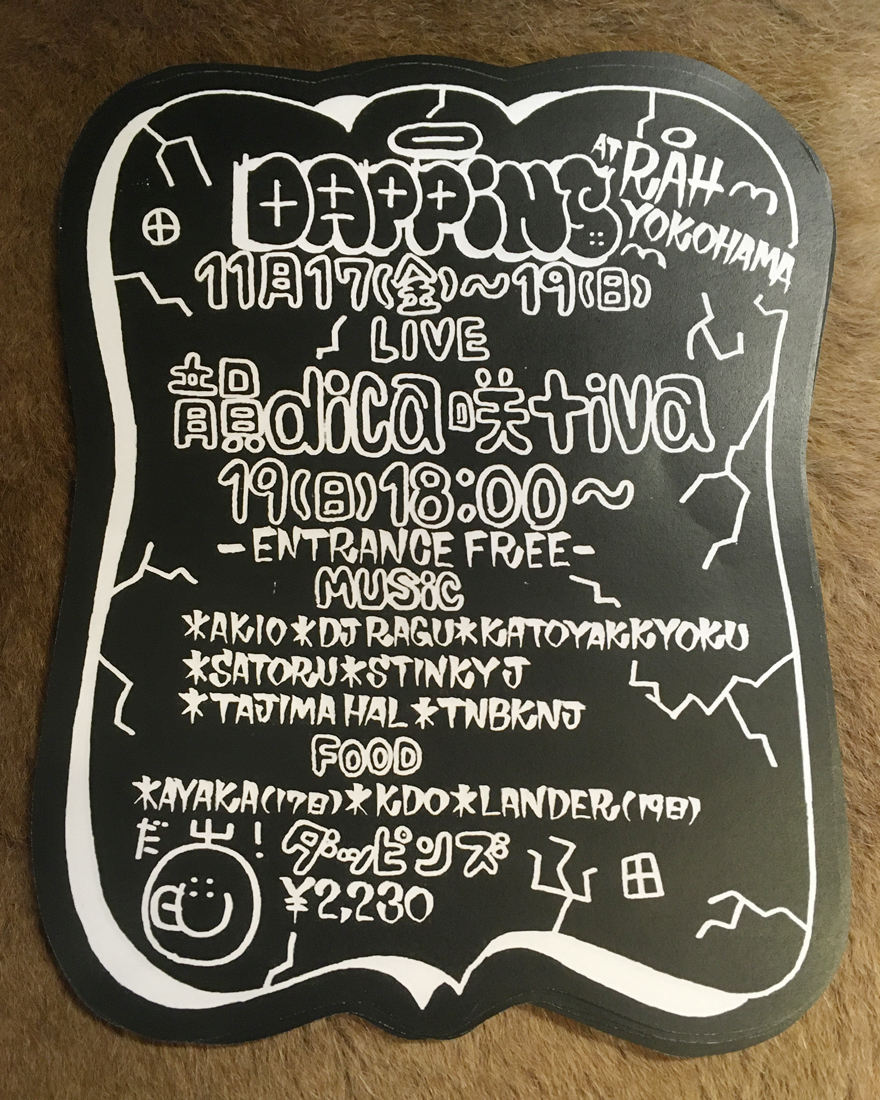 DAPPiNS
AT RAH
YOKOHAMA
11月17(金)〜19(日)
LIVE
韻dica 咲tiva
19(日)18:00〜
-ENTRANCE FREE-
MUSiC
*AKIO*DJ RAGU*KATOYAKKYOKU
*SATORU*STINKY J
*TAJIMA HAL*TNBKNJ
FOOD
*AYAKA(17日)*KDO*LANDER(19日)
だ !
ダッピンズ
¥2,230